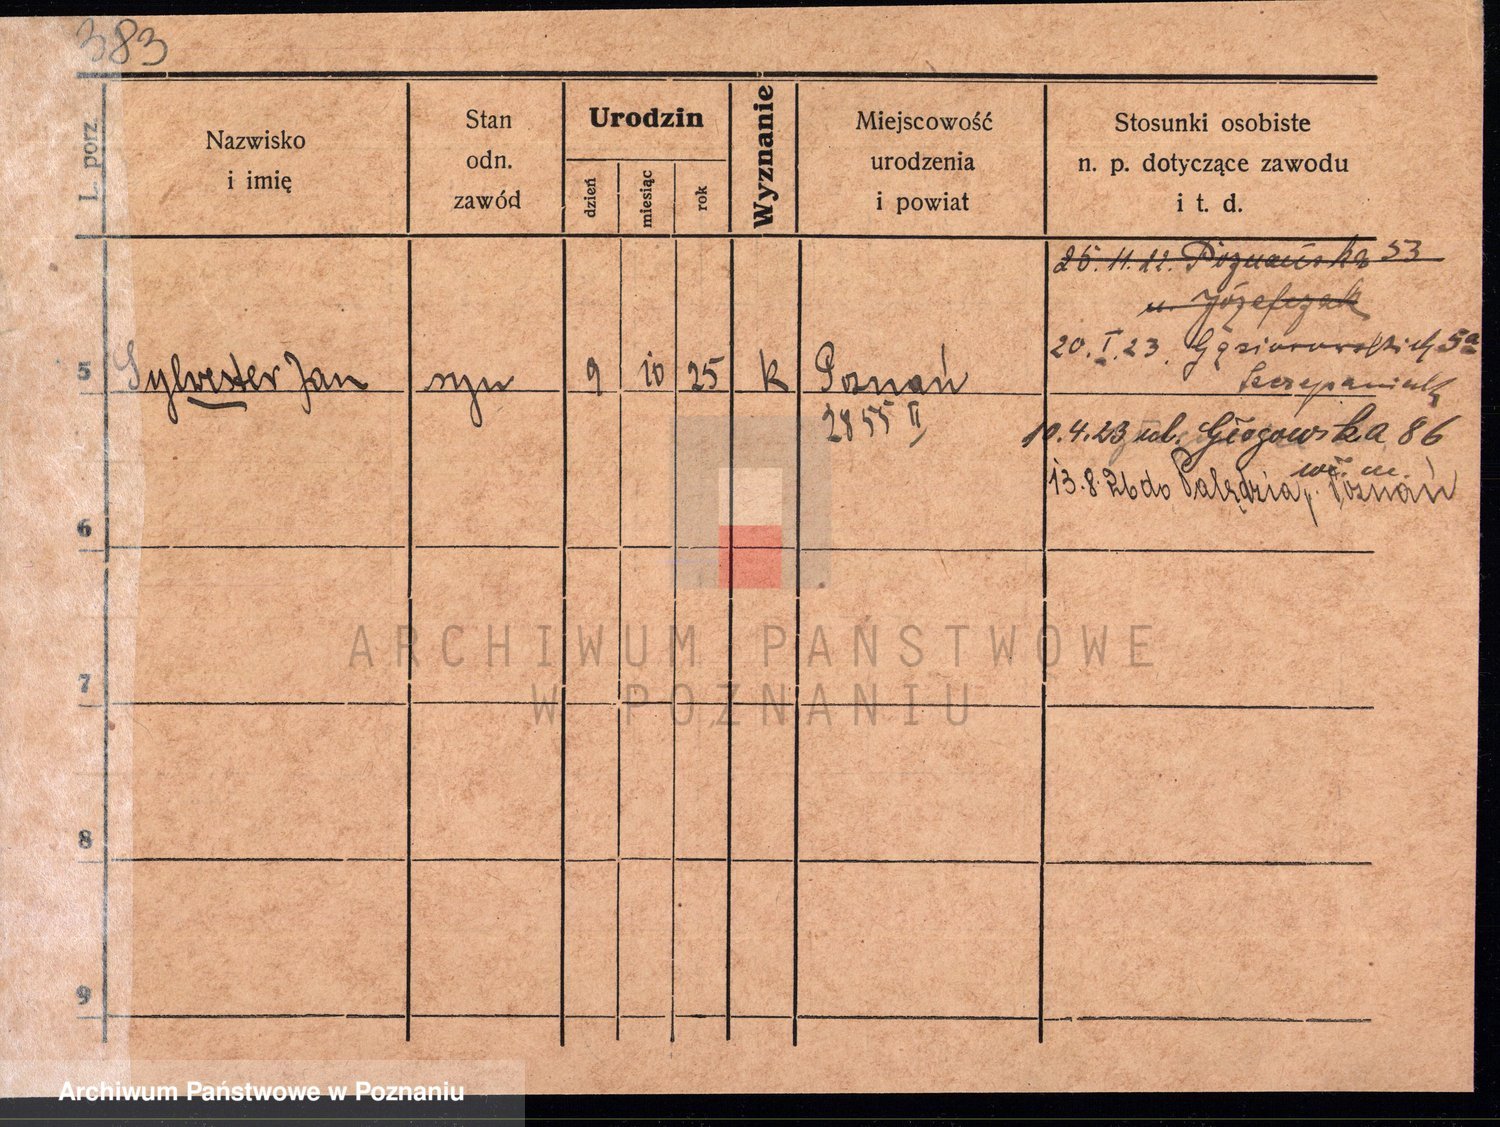 383
L. porz.
Nazwisko
i imię
Stan
odn.
zawód
Urodzin
dzień
miesiąc
rok
Wyznanie
Miejscowość
urodzenia
i powiat
Stosunki osobiste
n. p. dotyczące zawodu
i t. d.
25.11.22. Poznańska 53
u. Józefczak
20.I.23. Gąsiorowskich 5a
5 Sylvester Jan syn 9 10 25 k Poznań
2855 II
10.4.23 ul. Głogowska 86
wł. m.
13.8.26 do Palędzia p. Poznań
6
7
8
9
ARCHIWUM PAŃSTWOWE
W POZNANIU
Archiwum Państwowe w Poznaniu